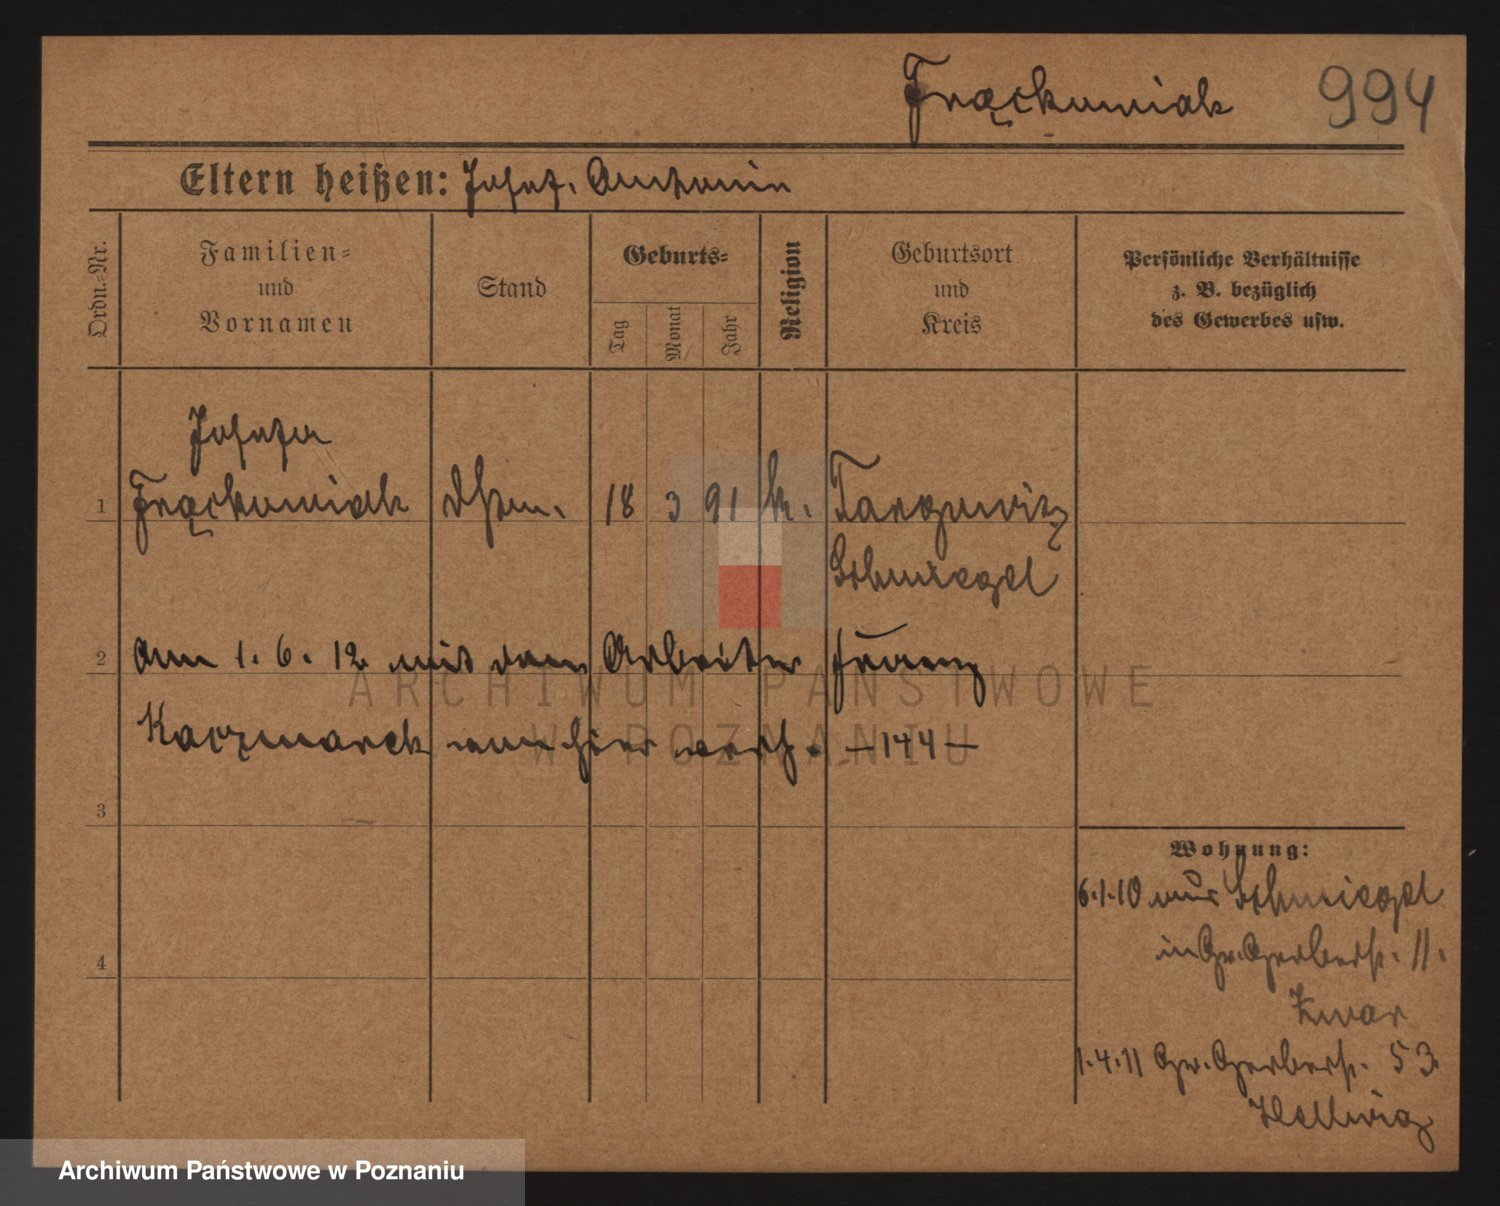 Frąckowiak 994
Eltern heißen: Josef, Antonin
Ordn.-Nr.
Familien-
und
Vornamen
Stand
Geburts-
Tag
Monat
Jahr
Religion
Geburtsort
und
Kreis
Persönliche Verhältnisse
z. B. bezüglich
des Gewerbes usw.
Josefa
1 Frąckowiak 18 3 91 k.
Schmiegel
2 Am 1. 6. 12 mit dem Arbeiter Franz
Kaczmarek von hier verh. —144—
3
Wohnung:
6.1.10 aus Schmiegel
4
in Gr. Gerberst. 11.
1.4.11 Gr. Gerberst. 53
Hellwig
ARCHIWUM PAŃSTWOWE
W POZNANIU
Archiwum Państwowe w Poznaniu